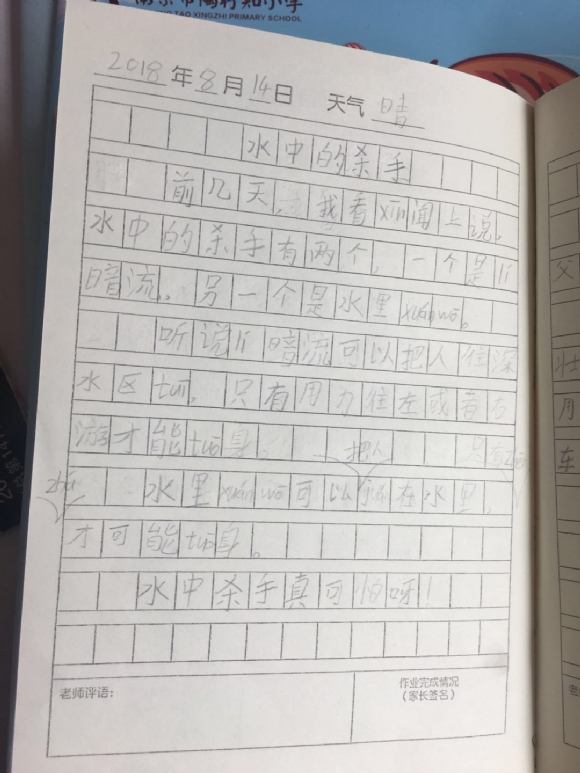 南京市陶行知小学
TAO XINGZHI PRIMARY SCHOOL
2018年8月14日 天气 晴
水中的杀手
前几天,我看xīn闻上说,
水中的杀手有两个,一个是lí
暗流,另一个是水里xuán wō。
听说lí暗流可以把人往深
水区tuī,只有用力往左或者右
游才能tuō身。 把人 只有
水里xuán wō可以 在水里,
才可能tuō身。
水中杀手真可怕呀!
老师评语:
作业完成情况
(家长签名)
父
壮
月
车